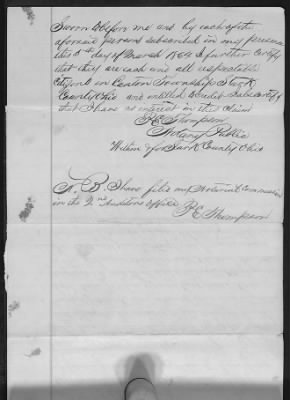 Sworn to before me and by each of the
aforesaid persons subscribed in my presence
this 5th day of March 1864 I further certify
that they are each and all respectable
Citizens in Canton Township Stark
County Ohio and entitled to credit I also certify
that I have no interest in this Claim
P.E. Thompson
Notary Public
Within & for Stark County Ohio
N. B. I have filed my Notarial Commission
in the 2nd Auditors Office P.E. Thompson